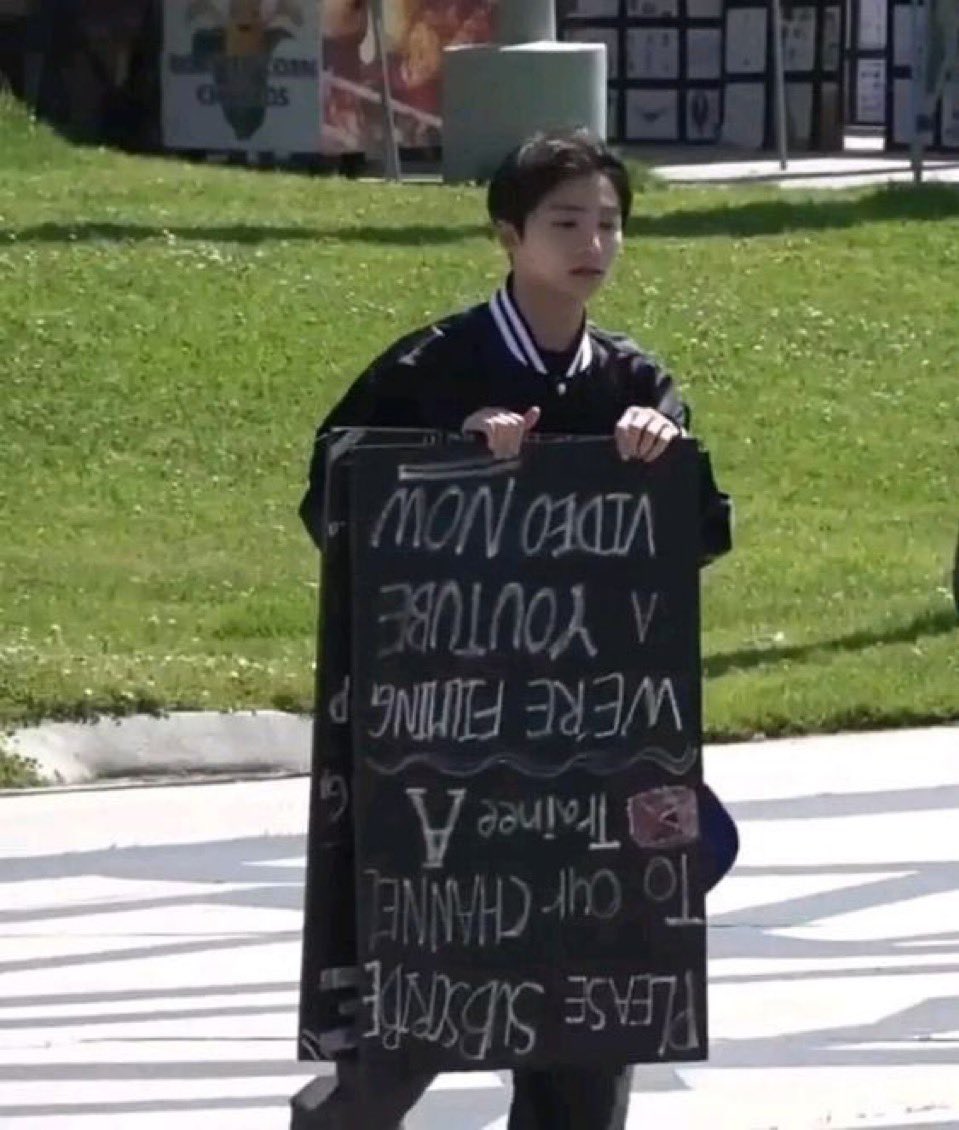 CORN
PLEASE SUBSCRIBE
TO OUR CHANNEL
Trainee A
WE'RE FILMING
A YOUTUBE
VIDEO NOW